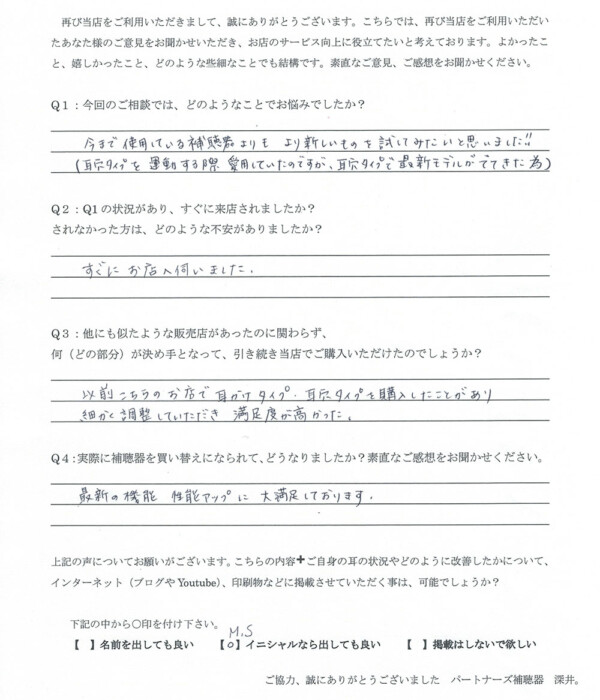 再び当店をご利用いただきまして、誠にありがとうございます。こちらでは、再び当店をご利用いただい
たあなた様のご意見をお聞かせいただき、お店のサービス向上に役立てたいと考えております。よかったこ
と、嬉しかったこと、どのような些細なことでも結構です。素直なご意見、ご感想をお聞かせください。
Q1：今回のご相談では、どのようなことでお悩みでしたか？
今まで使用している補聴器よりも より新しいものを試してみたいと思いました!!
(耳穴タイプを運動する際 愛用していたのですが、耳穴タイプで最新モデルがでてきた為)
Q2：Q1の状況があり、すぐに来店されましたか？
されなかった方は、どのような不安がありましたか？
すぐに お店へ伺いました.
Q3：他にも似たような販売店があったのに関わらず、
何（どの部分）が決め手となって、引き続き当店でご購入いただけたのでしょうか？
以前こちらのお店で耳かけタイプ・耳穴タイプを購入したことがあり
細かく調整していただき 満足度が高かった。
Q4：実際に補聴器を買い替えになられて、どうなりましたか？素直なご感想をお聞かせください。
最新の機能 性能アップに 大満足しております.
上記の声についてお願いがございます。こちらの内容＋ご自身の耳の状況やどのように改善したかについて、
インターネット（ブログやYoutube）、印刷物などに掲載させていただく事は、可能でしょうか？
下記の中から〇印を付け下さい。
M.S
【 】名前を出しても良い 【o】イニシャルなら出しても良い 【 】掲載はしないで欲しい
ご協力、誠にありがとうございました パートナーズ補聴器 深井。